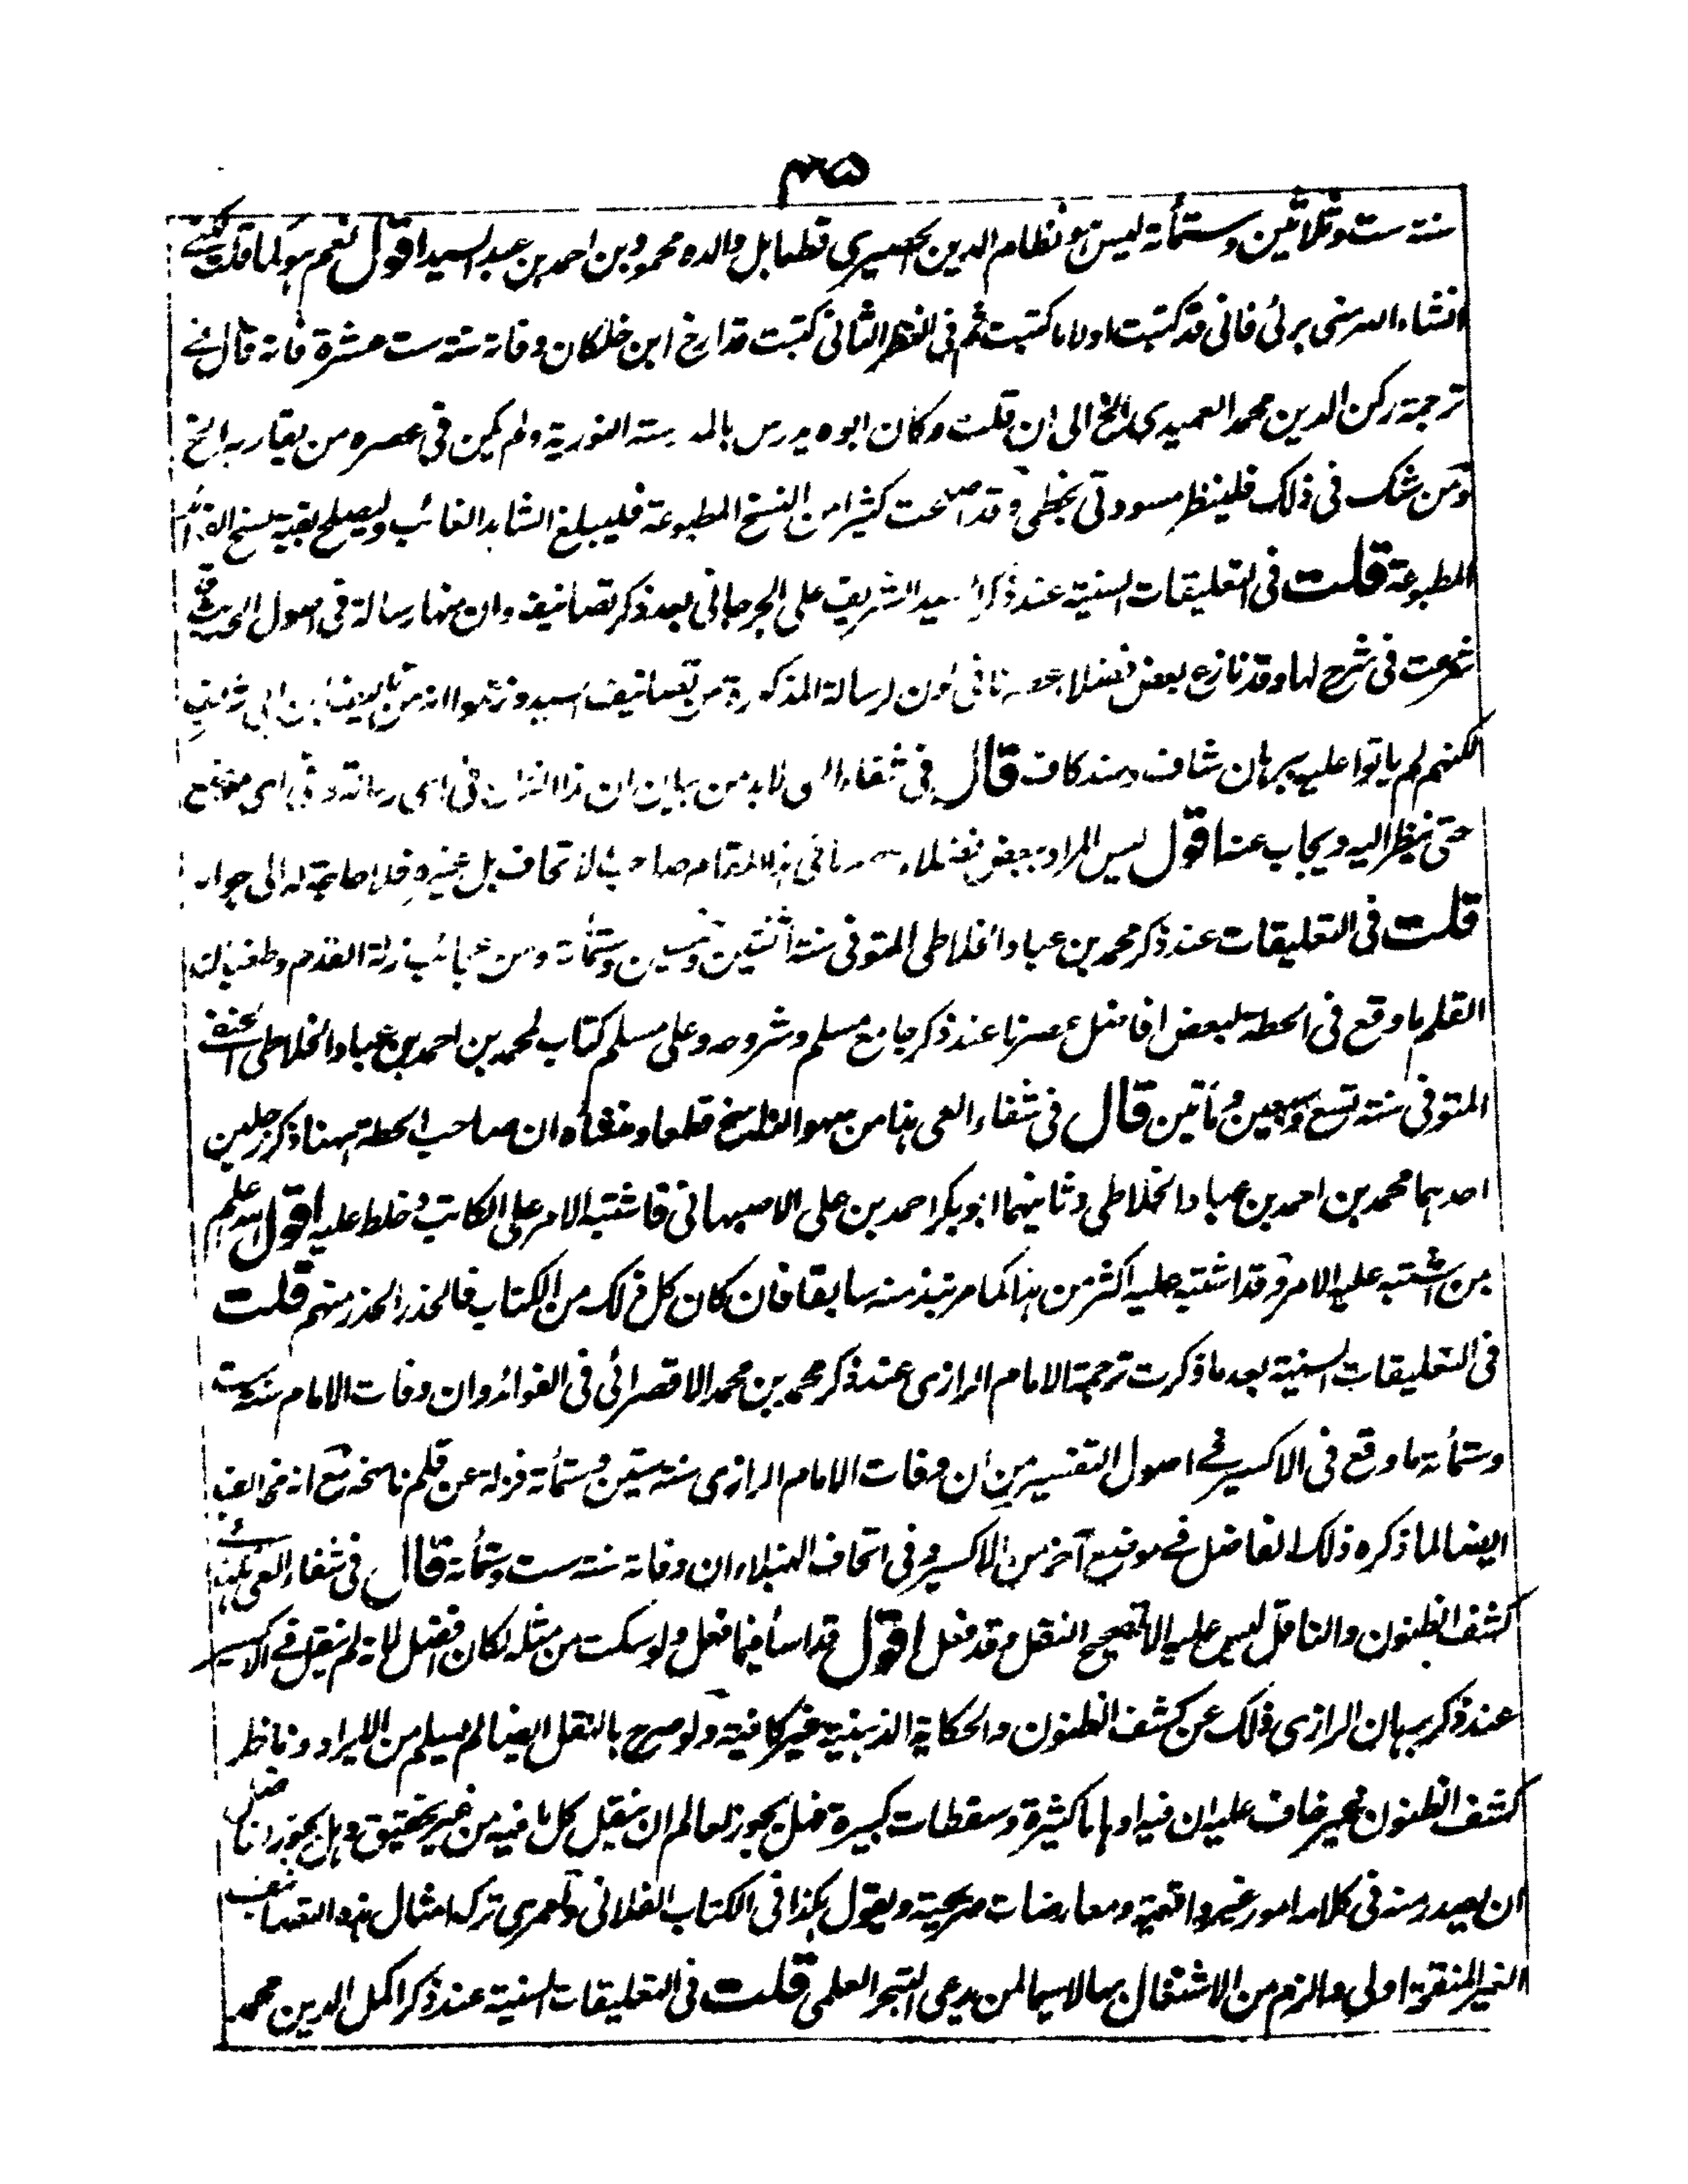 ٤٥
سنة ست وثلاثين وستمأة ليس هو نظام الدين الحصيري قطعا بل والده محمود بن احمد بن عبد السيد اقول نعم هو كما قلت لكننے
انشاء الله منى برئ فانى قد كتبت اولا ما كتبت ثم فى النظر الثانى كتبت قد ارخ ابن خلكان وفاته سنة ست عشرة فانه قال فے
ترجمة ركن الدين محمد العميدى الخ الى ان قلت وكان ابوه يدرس بالمدرسة النورية ولم يكن فى عصره من يقاربه الخ
ومن شك فى ذلك فلينظر مسودتى بخطى وقد اصلحت كثيرا من النسخ المطبوعة فليبلغ الشاهد الغائب وليصلح بقية نسخ الفوائد
المطبوعة قلت فى التعليقات السنية عند ذكر السيد الشريف على الجرجانى بعد ذكر تصانيفه وان منها رسالة فى اصول الحديث وقد
شرعت فى شرح لها وقد نازع بعض فضلاء عصرنا فى كون الرسالة المذكورة من تصانيف السيد وزعموا انه من
لكنهم لم ياتوا عليه ببرهان شاف وسند كاف قال فى شفاء العى لابد من بيان ان هذا النزاع فى اى رسالة وفى اى موضع
حتى ينظر اليه ويجاب عنه اقول ليس المراد ببعض فضلاء عصرنا فى هذا المقام صاحب الاتحاف بل غيره فلا حاجة له الى جوابه
قلت فى التعليقات عند ذكر محمد بن عباد الخلاطى المتوفى سنة اثنتين وخمسين وستمأة ومن عجائب زلة القدم وطغيان
القلم ما وقع فى الحطة لبعض افاضل عصرنا عند ذكر جامع مسلم وشروحه وعلى مسلم كتاب لمحمد بن احمد بن عباد الخلاطى الحنفے
المتوفى سنة تسع وسبعين ومأتين قال فى شفاء العى هذا من سهو الناسخ قطعا ومنشأه ان صاحب الحطة ههنا ذكر رجلين
احدهما محمد بن احمد بن عباد الخلاطى وثانيهما ابو بكر احمد بن على الاصبهانى فاشتبه الامر على الكاتب وخلط عليه اقول الله اعلم
بمن اشتبه عليه الامر وقد اشتبه عليه اكثر من هذا كما مر نبذ منه سابقا فان كان كل ذلك من الكتاب فالحذر الحذر منهم قلت
فى التعليقات السنية بعد ما ذكرت ترجمة الامام الرازى عند ذكر محمد بن محمد الاقصرائى فى الفوائد وان وفات الامام سنة ست
وستمأة ما وقع فى الاكسير فے اصول التفسير من ان وفات الامام الرازى سنة ستين وستمأة فزلة عن قلم ناسخه مع انه مخالف
ايضا لما ذكره ذلك الفاضل فے موضع آخر من الاكسير وفى اتحاف النبلاء ان وفاته سنة ست وستمأة قال فى شفاء العى هكذا فے
كشف الظنون والناقل ليس عليه الا تصحيح النقل وقد فعل اقول قد اسأ فيما فعل ولو سكت من مثله لكان فضل له لم ينقل فے الاكسير
عند ذكر برهان الرازى ذلك عن كشف الظنون والحكاية الذهنية غير كافية ولو صرح بالنقل ايضا لم يسلم من الايراد وناظر
كشف الظنون غير خاف عليه ان فيه اوهاما كثيرة وسقطات كبيرة فهل يجوز لعالم ان ينقل كل ما فيه من غير تحقيق وهل يجوز لفاضل
ان يصدر منه فى كلامه امور غير واقعية ومعارضات صريحة ويقول هكذا فى الكتاب الفلانى ولعمرى ترك امثال هذه التصانيف
الغير المنقحة اولى والزم من الاشتغال بها لا سيما لمن يدعى التبحر العلمى قلت فى التعليقات السنية عند ذكر اكمل الدين محمد